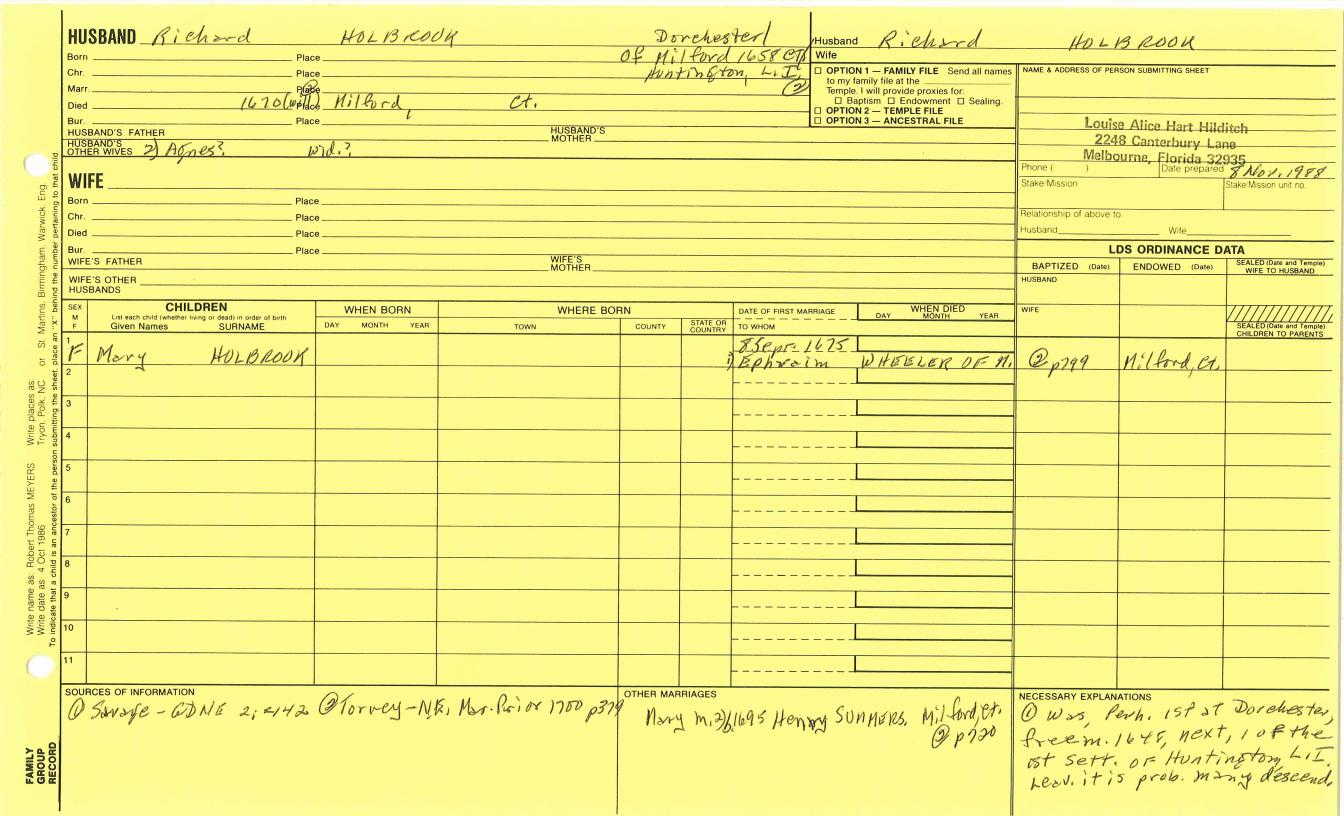 HUSBAND Richard HOLBROOK Dorchester/
Born Place Of Milford 1658 CT/
Chr. Place Huntington, L.I.
Marr. Place ②
Died 1670 (will) Place Milford, Ct.
Bur. Place
HUSBAND'S FATHER HUSBAND'S MOTHER
HUSBAND'S OTHER WIVES 2) Agnes? wid.?
WIFE
Born Place
Chr. Place
Died Place
Bur. Place
WIFE'S FATHER WIFE'S MOTHER
WIFE'S OTHER HUSBANDS
Husband Richard HOLBROOK
Wife
☐ OPTION 1 — FAMILY FILE Send all names
to my family file at the
Temple. I will provide proxies for:
☐ Baptism ☐ Endowment ☐ Sealing.
☐ OPTION 2 — TEMPLE FILE
☐ OPTION 3 — ANCESTRAL FILE
NAME & ADDRESS OF PERSON SUBMITTING SHEET
Louise Alice Hart Hilditch
2248 Canterbury Lane
Melbourne, Florida 32935
Phone ( ) Date prepared 8 Nov. 1988
Stake/Mission Stake/Mission unit no.
Relationship of above to:
Husband Wife
LDS ORDINANCE DATA
BAPTIZED (Date) ENDOWED (Date) SEALED (Date and Temple) WIFE TO HUSBAND
HUSBAND
WIFE
SEALED (Date and Temple) CHILDREN TO PARENTS
SEX M F
CHILDREN
List each child (whether living or dead) in order of birth
Given Names SURNAME
WHEN BORN
DAY MONTH YEAR
WHERE BORN
TOWN COUNTY STATE OR COUNTRY
DATE OF FIRST MARRIAGE
TO WHOM
WHEN DIED
DAY MONTH YEAR
1 8 Sept. 1675
F Mary HOLBROOK 1) Ephraim WHEELER OF M. ② p799 Milford, Ct.
2
3
4
5
6
7
8
9
10
11
SOURCES OF INFORMATION
① Savage - GDNE 2:442 ② Torrey - N.E. Mar. Prior 1700 p379
OTHER MARRIAGES
Mary m. 2) 1695 Henry SUMMERS, Milford, Ct.
② p720
NECESSARY EXPLANATIONS
① Was, Perh. 1st at Dorchester,
freem. 1648, next, 1 of the
1st Sett. of Huntington, L.I.
Leav. it is prob. many descend.
Write name as: Robert Thomas MEYERS Write places as: Tryon, Polk, NC or St. Martins, Birmingham, Warwick, Eng.
Write date as: 4 Oct 1986
To indicate that a child is an ancestor of the person submitting the sheet, place an "X" behind the number pertaining to that child.
FAMILY
GROUP
RECORD